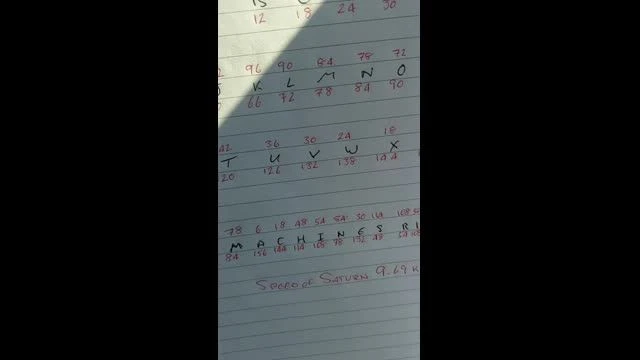 12 18 24 30
96 90 84 78 72
K L M N O
66 72 78 84 90
42 36 30 24 18
T U V W X
120 126 132 138 144
78 6 18 48 54 84 30 114 108
M A C H I N E S R I
84 156 144 114 108 78 132 48 54 108
SPEED OF SATURN 9.69 K